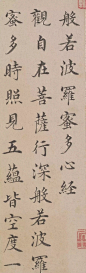 般若波羅蜜多心經
觀自在菩薩行深般若波羅
蜜多時照見五蘊皆空度一